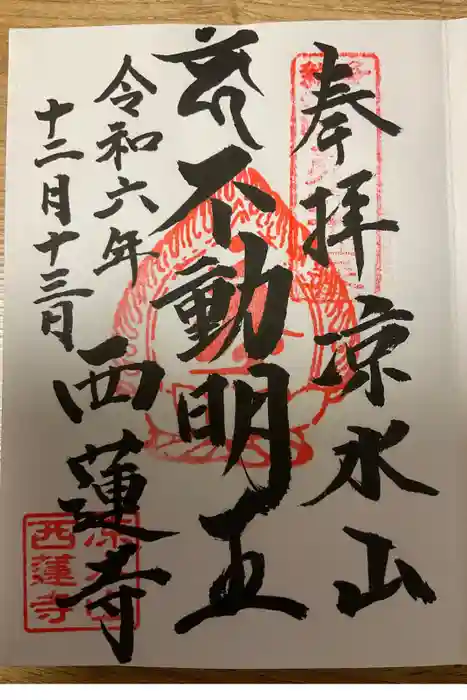 奉拝 凉水山
不動明王
西蓮寺
令和六年
十二月十三日
西蓮寺